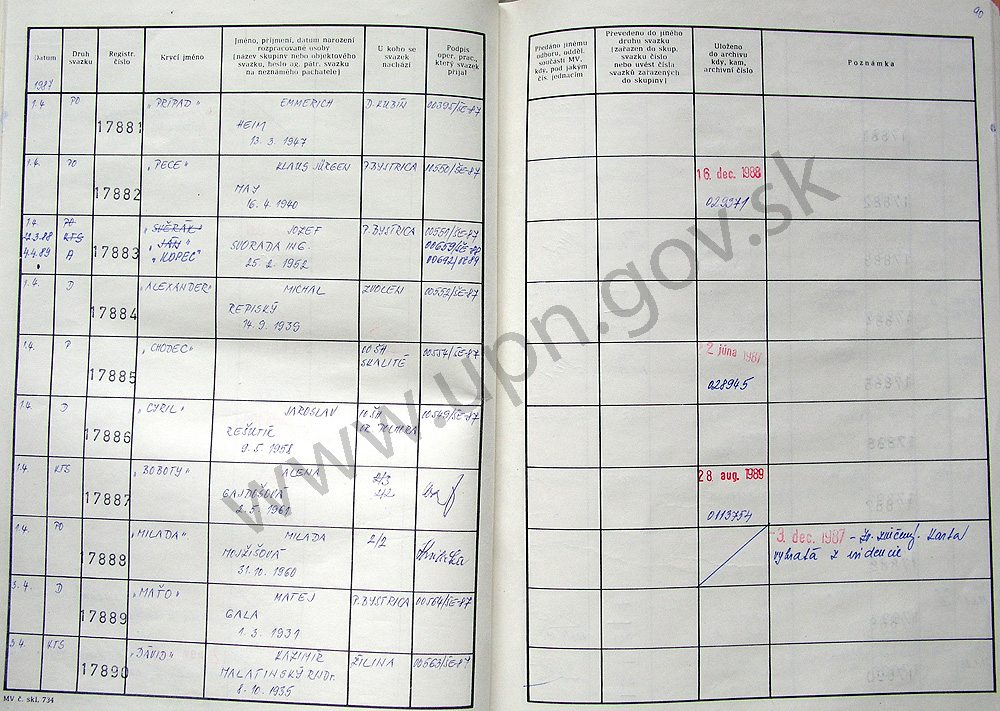 90
Datum
1987
Druh
svazku
Registr.
číslo
Krycí jméno
Jméno, příjmení, datum narození
rozpracované osoby
(název skupiny nebo objektového
svazku, heslo ag. pátr. svazku
na neznámého pachatele)
U koho se
svazek
nachází
Podpis
oper. prac.,
který svazek
přijal
Předáno jinému
odboru, odděl.
součásti MV,
kdy, pod jakým
čís. jednacím
Převedeno do jiného
druhu svazku
(zařazen do skup.
svazku číslo
nebo uvést čísla
svazků zařazených
do skupiny)
Uloženo
do archivu
kdy, kam,
archivní číslo
Poznámka
1.4. PO 17881 "PRÍPAD" EMMERICH D. KUBÍN 00395/ŠE-87
HEIM
13. 3. 1947
1.4. PO 17882 "PECE" KLAUS JÜRGEN P.BYSTRICA 00550/ŠE-87 16. dec. 1988
MAY
16. 4. 1940 029371
1.4. PO "SUĚRÁK" JOZEF P.BYSTRICA 00551/ŠE-87
22.3.88 KTS 17883 "JÁN" SVORADA ING. 00659/ŠE-88
4.4.89 A "KOPEC" 25. 2. 1952
1.4. D 17884 "ALEXANDER" MICHAL ZVOLEN 00552/ŠE-87
REPISKÝ
14. 9. 1939
1.4. P 17885 "CHODEC" OOŠH 00554/ŠE-87 2 júna 1987
SKALITÉ
028945
1.4. D 17886 "CYRIL" JAROSLAV OOŠH 00549/ŠE-87
9. 5. 1958
1.4. KTS 17887 "BOBOTY" ALENA 2/3 28 aug. 1989
GAJDOŠOVÁ 2/2
2. 5. 1961 0113754
1.4. PO 17888 "MILADA" MILADA 2/2 3. dec. 1987 - Karta
MOJŽIŠOVÁ vybratá z evidencie
31. 10. 1960
3.4. D 17889 "MAŤO" MATEJ P.BYSTRICA 00564/ŠE-87
GALA
1. 3. 1931
3.4. KTS 17890 "DÁVID" KAZIMÍR ŽILINA 00563/ŠE-87
MALATINSKÝ RNDr.
8. 10. 1935
MV č. skl. 734
www.upn.gov.sk